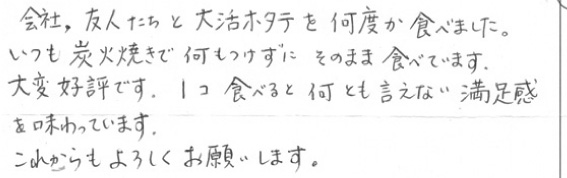 会社，友人たちと大活ホタテを何度か食べました。
いつも炭火焼きで何もつけずにそのまま食べています．
大変好評です．1コ食べると何とも言えない満足感
を味わっています．
これからもよろしくお願いします。